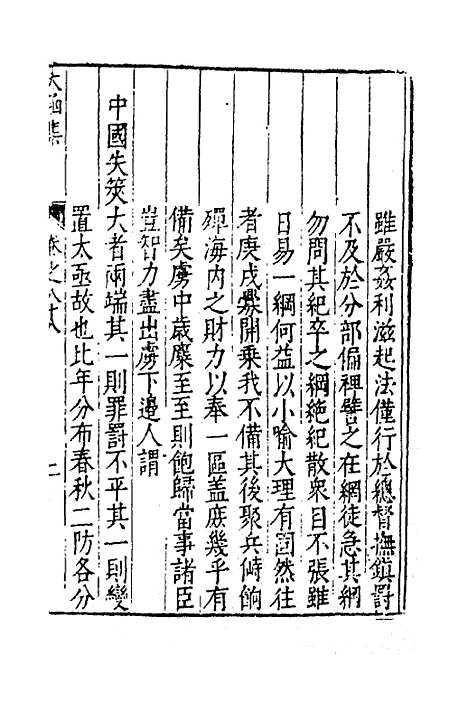 雖嚴姦利滋起法僅行於總督撫鎮罰
不及於分部偏裨譬之在網徒急其綱
勿問其紀卒之綱絶紀散衆目不張雖
日易一綱何益以小喻大理有固然往
者庚戌釁開乘我不備其後聚兵峙餉
殫海内之財力以奉一區盖庶幾乎有
備矣虜中歳糜至至則飽歸當事諸臣
豈智力盡出虜下邊人謂
中國失筴大者兩端其一則罪罰不平其一則變
置太亟故也比年分布春秋二防各分
太函集
卷之八十八
二